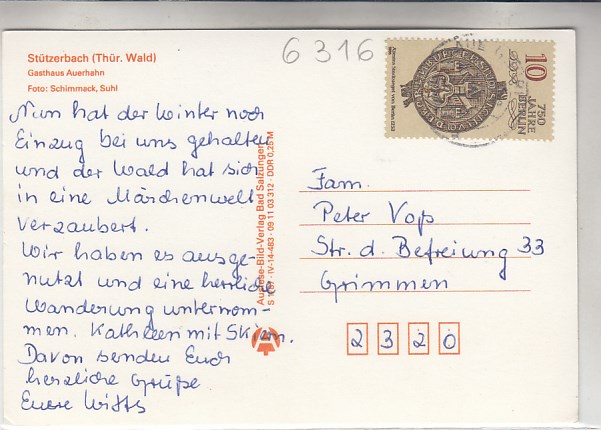 6316
Stützerbach (Thür. Wald)
Gasthaus Auerhahn
Foto: Schimmack, Suhl
Nun hat der Winter noch
Einzug bei uns gehalten
und der Wald hat sich
in eine Märchenwelt
verzaubert.
Wir haben es ausge-
nutzt und eine herrliche
Wanderung unternom-
men. Kathleen mit Skiern.
Davon senden Euch
herzliche Grüße
Eure Witts
Auslese-Bild-Verlag Bad Salzungen
IV-14-483 · 09 11 03 312 · DDR 0,25 M
10
750
JAHRE
BERLIN
Fam.
Peter Voß
Str. d. Befreiung 33
Grimmen
2320